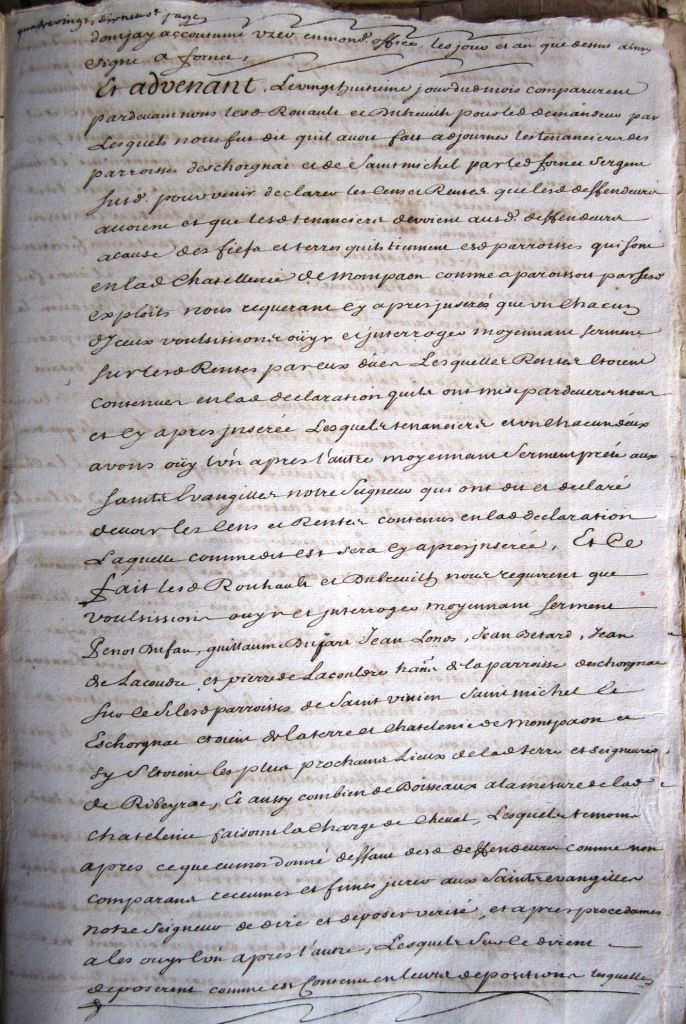 quatrevingts dixneuf page
dont jay accoutumé uzer en mond. office les jour et an que dessus ainsy
Signé a forner
Et advenant, Le vingt huitieme jour dud mois comparurent
pardevant nous lesd Rouault et Dubreuilh pour led demandeur par
Lesquels nous fut dit quil avoit fait adjourner les tenanciers des
parroisses deschorgnac et de Saint michel par led forner Sergent
Susd. pour venir declarer les Cens et Rentes que lesd deffendeurs
avoient et que lesd tenanciers devoient ausd. deffendeurs
acause des fiefs et terres quils tiennent esd parroisses qui sont
en lad Chatellenie de Monpaon comme aparoissoit par sesd
exploits nous requerant Cy apres jnserés que un Chacun
dJceux voulsissions ouyr et jnterroger moyennant serment
Sur lesd Rentes par eux dues Lesquelles Rentes Etoient
Contenues en lad declaration quils ont mis pardevers nous
et Cy apres jnserée Lesquels tenanciers et un Chacun deux
avons oüy lun apres l'autre moyennant Serment preté aux
Saints Evangilles notre Seigneur qui ont dit et declaré
devoir les Cens et Rentes contenus en lad declaration
Laquelle comme dit est sera Cy apres jnserée, Et Ce
fait lesd Rouhault et Dubreuilh nous requirent que
voulsissions ouyr et jnterroger moyennant serment
Penot Dufau, guillaume Jean Lonos, Jean Betard, Jean
de Lacoudre, et pierre de Lacoudre de la parroisse deschorgnac
Sur le Si lesd parroisses de Saint vivien Saint michel et
Eschorgnac etoient de la terre et Chatelenie de Montpaon et
Sy S'Etoient les plus prochains Lieux de lad terre et Seigneurie
de Ribeyrac, Et aussy combien de Boisseaux a la mesure de lad
chatelenie faisoient la Charge de Cheval, Lesquels temoins
apres ce que eumes donné deffaut desd deffendeurs comme non
comparans receumes et fimes jurer aux Saints evangilles
notre Seigneur de dire et deposer verité, et apres procedames
a les ouyr lun apres l'autre, Lesquels Sur Ce dirent
deposerent comme est Contenu en leurs depositions lesquelles